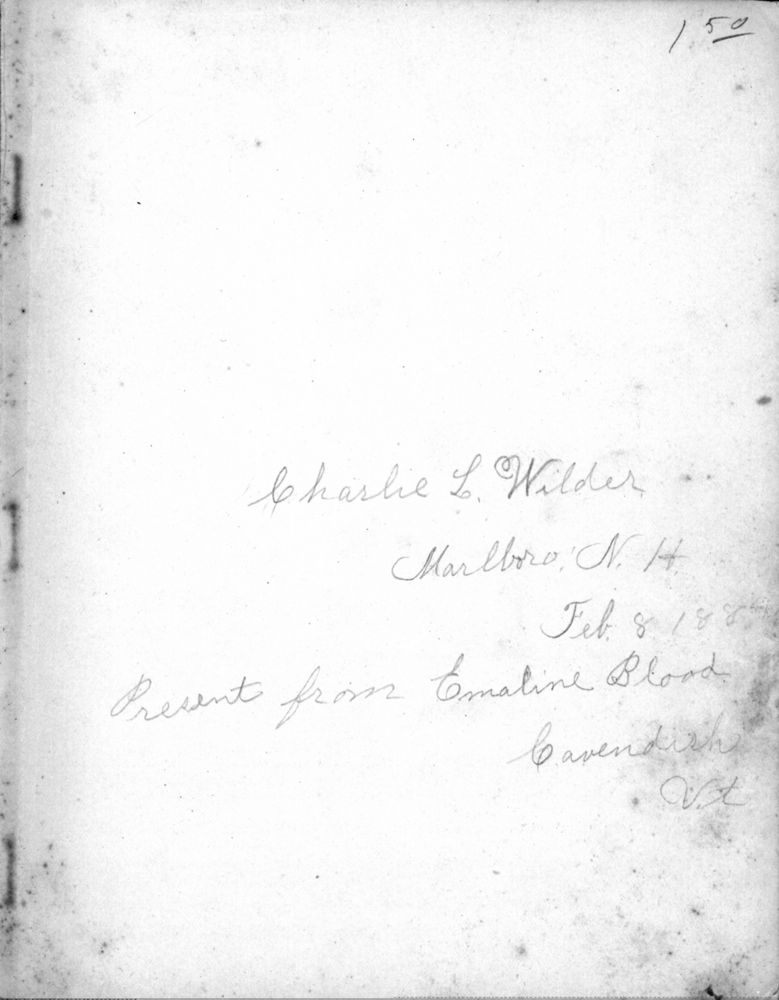 1 50
Charlie L. Wilder
Marlboro, N. H.
Feb. 8
Present from Emaline Blood
Cavendish
Vt